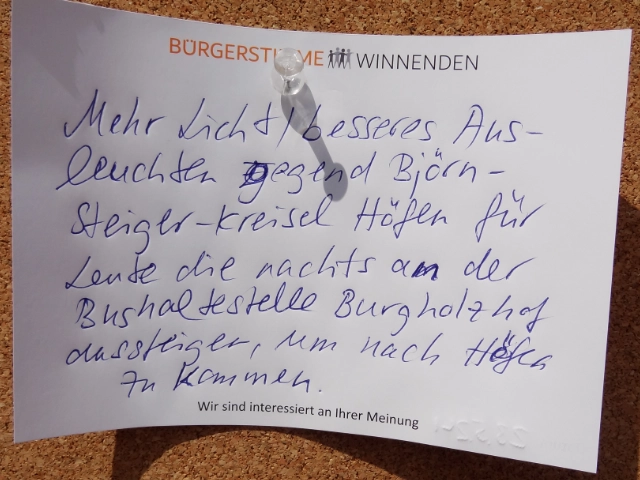 BÜRGERSTIMME WINNENDEN
Mehr Licht/besseres Aus-
leuchten Gegend Björn-
Steiger-Kreisel Höfen für
Leute die nachts an der
Bushaltestelle Burgholzhof
aussteigen, um nach Höfen
zu kommen.
Wir sind interessiert an Ihrer Meinung